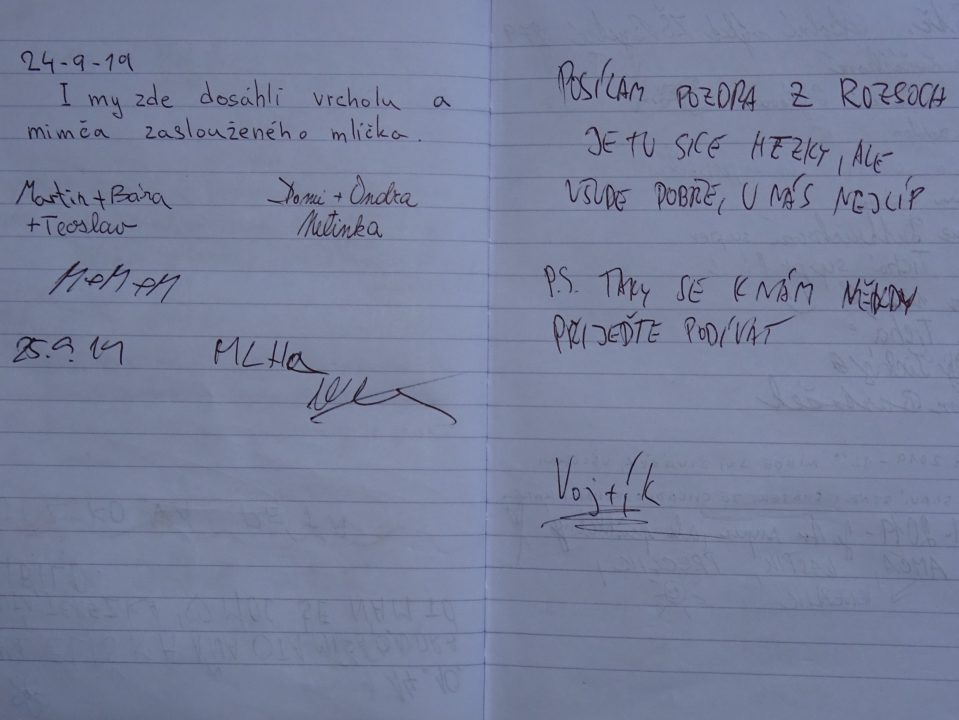 24-9-19
I my zde dosáhli vrcholu a
mimča zaslouženého mlíčka.
Martin + Bára
+ Teoslav
Domi + Ondra
Metinka
M+M+M
25.9.19 MLHa
POSÍLAM POZDRA Z ROZSOCH
JE TU SICE HEZKY, ALE
VŠUDE DOBŘE, U NÁS NEJLÍP
P.S. TAKY SE K NÁM NĚKDY
PŘIJEĎTE PODÍVAT
Vojtík